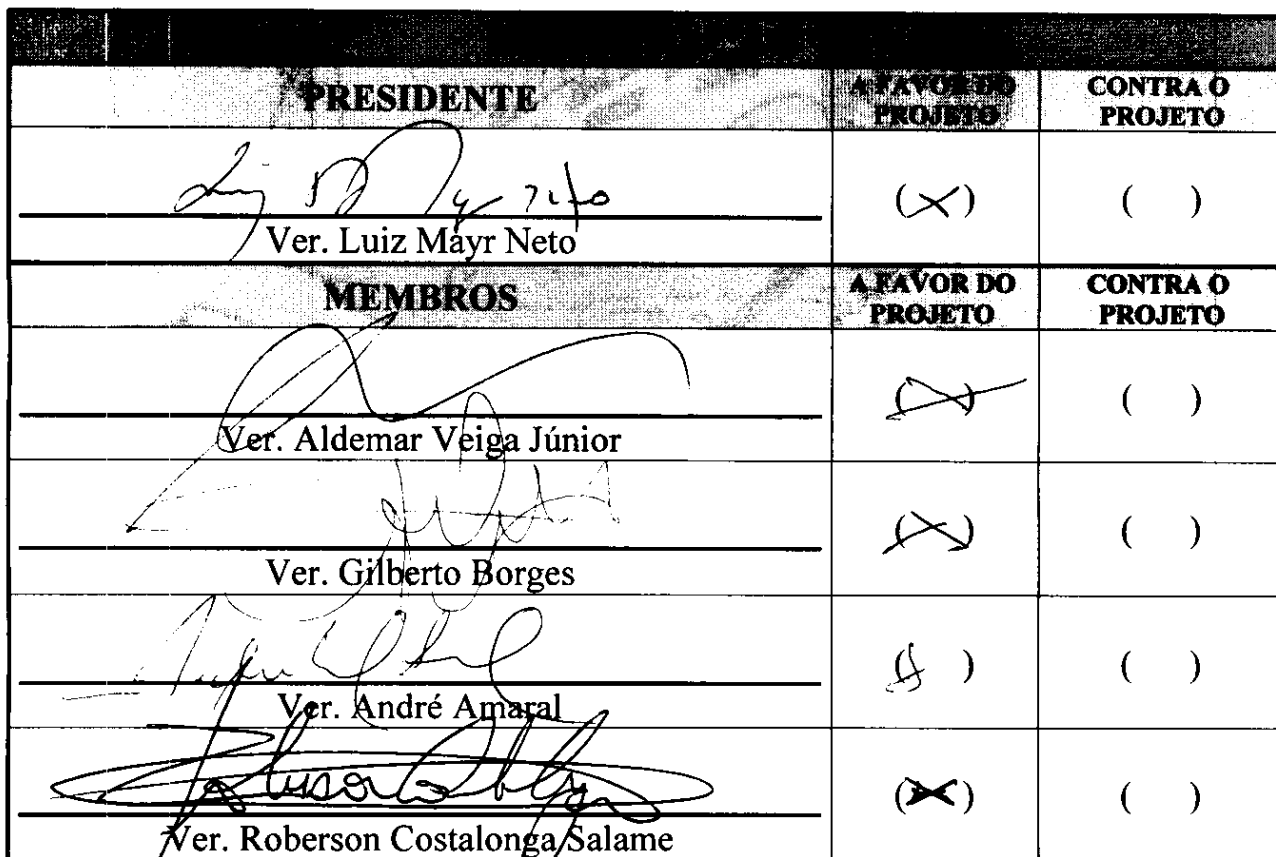 PRESIDENTE A FAVOR DO PROJETO CONTRA O PROJETO
(X) ( )
Ver. Luiz Mayr Neto
MEMBROS A FAVOR DO PROJETO CONTRA O PROJETO
(X) ( )
Ver. Aldemar Veiga Júnior
(X) ( )
Ver. Gilberto Borges
( ) ( )
Ver. André Amaral
(X) ( )
Ver. Roberson Costalonga Salame